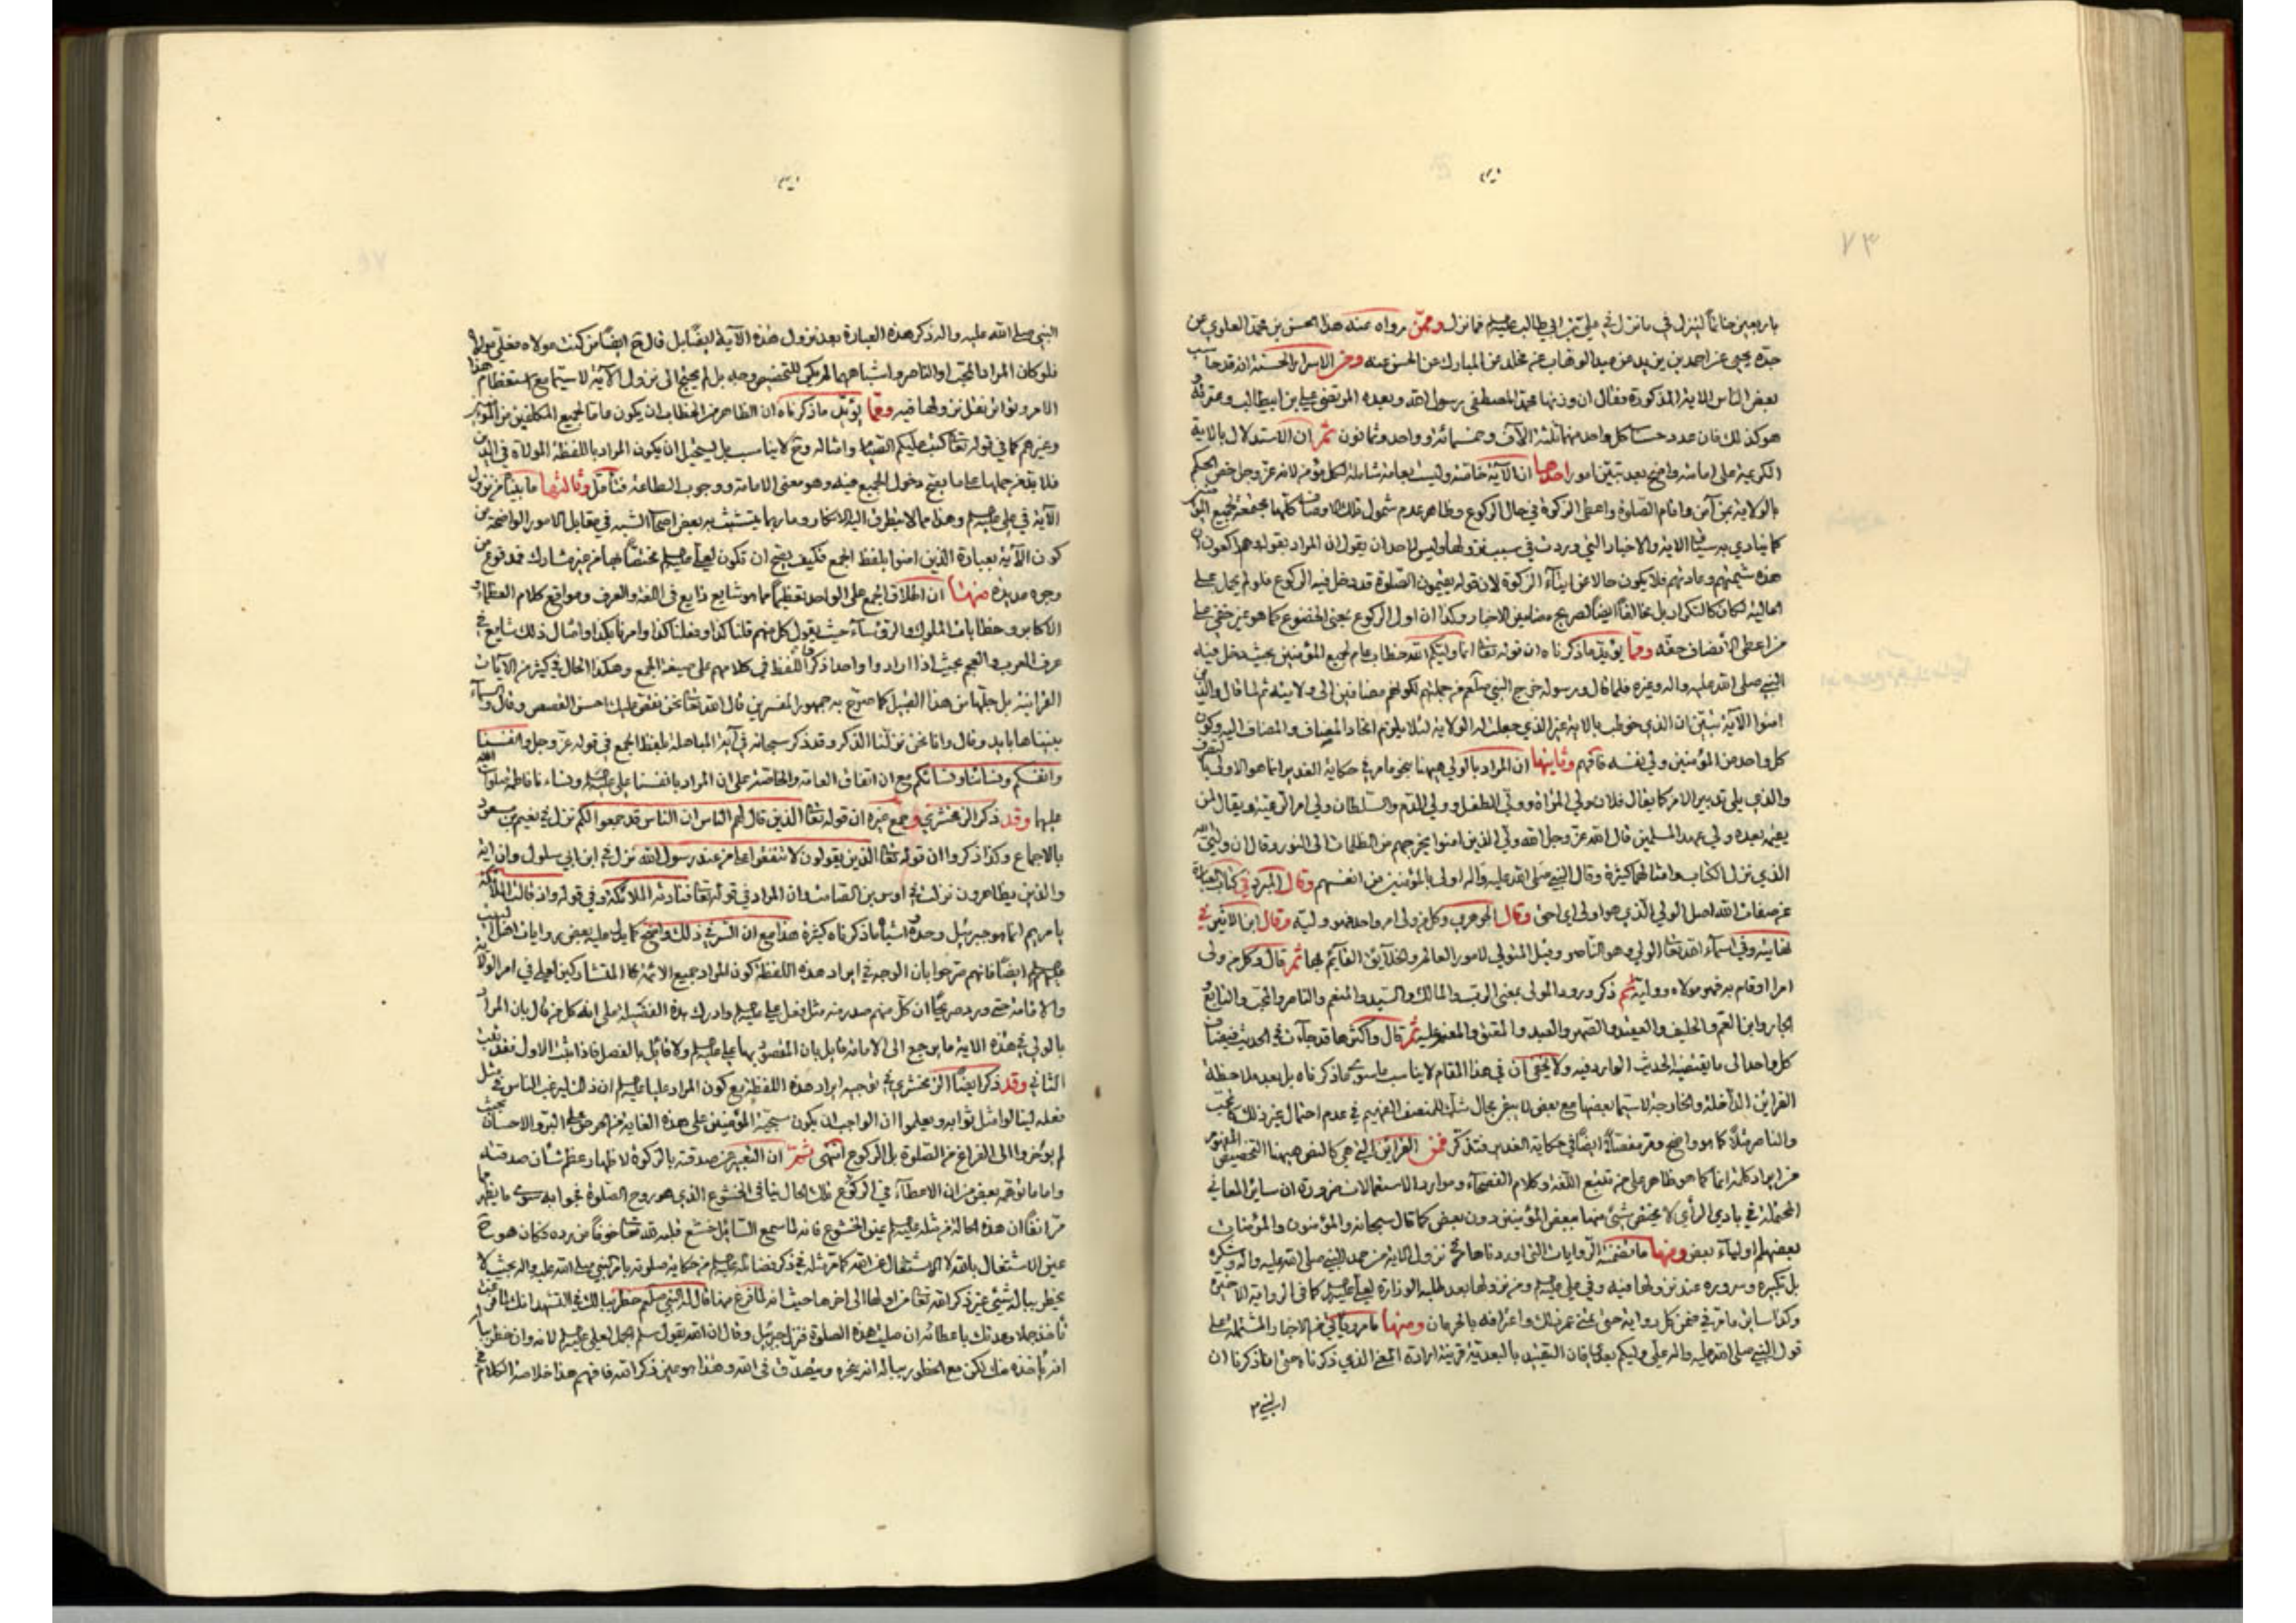 ٧٣
باربعين خاتماً لينزل في ما نزل في علي بن ابي طالب عليه السلم فما نزل وممن رواه عنه هذا الحسن بن محمد العلوي عن
جده يحيى عن احمد بن يزيد عن عبد الوهاب عن مخلد عن المبارك عن الحسن عنه ومن الاسرار الحسنة انه قد حاسب
بعض الناس الاية المذكورة فقال ان وزنها محمد المصطفى رسول الله وبعده المرتضى علي بن ابيطالب وعترته و
هو كذلك فان عدد حساب كل واحد منهما ثلثة الآف وخمسمائة وواحد وثمانون ثم ان الاستدلال بالاية
الكريمة على امامته واضح بعد تبيين امور احدها ان الآية خاصة وليست بعامة شاملة لكل مؤمن لانه عز وجل خص الحكم
بالولاية بمن آمن واقام الصلوة واعطى الزكوة في حال الركوع وظاهر عدم شمول تلك الاوصاف كلها مجتمعة لجميع المؤمنين
كما ينادي به سياق الاية والاخبار التي وردت في سبب نزولها وليس لاحد ان يقول ان المراد بقوله وهم راكعون ان
هذه شيمتهم وعادتهم فلا يكون حالا عن ايتاء الزكوة لان قوله يقيمون الصلوة قد دخل فيه الركوع فلو لم يحمل على
الحالية لكان كالتكرار بل مخالفاً ايضاً لصريح مضامين الاخبار وكذا ان اول الركوع بمعنى الخضوع كما هو غير خفي على
من اعطى الانصاف حقه ومما يؤيد ما ذكرناه ان قوله تعالى انما وليكم الله خطاب عام لجميع المؤمنين بحيث دخل فيه
النبي صلى الله عليه واله وغيره فلما قال ورسوله خرج النبي صلعم من جملتهم لكونهم مضافين الى ولايته ثم لما قال والذين
امنوا الآية تبين ان الذي خوطب بالاية غير الذي جعلت له الولاية لئلا يلزم اتحاد المضاف والمضاف اليه وكون
كل واحد من المؤمنين ولي نفسه فافهم وثانيها ان المراد بالولي هيهنا بنحو ما مر في حكاية الغدير انما هو الاولى بالتصرف
والذي يلي تدبير الامر كما يقال فلان ولي المراة وولي الطفل وولي الدم والسلطان ولي امر الرعية ويقال لمن
يقيمه بعده ولي عهد المسلمين قال الله عز وجل الله ولي الذين امنوا يخرجهم من الظلمات الى النور وقال ان وليي الله
الذي نزل الكتاب وامثالهما كثيرة وقال النبي صلى الله عليه واله اولى بالمؤمنين من انفسهم وقال المبرد في كتاب العبارة
عن صفات الله اصل الولي الذي هو اولى اي احق وقال الجوهري وكل من ولى امر واحد فهو وليه وقال ابن الاثير في
نهايته وفي اسماء الله تعالى الولي وهو الناصر وقيل المتولي لامور العالم والخلايق القايم بها ثم قال وكل من ولى
امرا او قام به فهو مولاه ووليه ثم ذكر ورود المولى بمعنى الرب والمالك والسيد والمنعم والناصر والمحب والتابع و
الجار وابن العم والحليف والعقيد والصهر والعبد والمعتق والمنعم عليه ثم قال واكثرها قد جاءت في الحديث فيضاف
كل واحد الى ما يقتضيه الحديث الوارد فيه ولا يخفى ان في هذا المقام لا يناسب ما سوى ما ذكرناه بل بعد ملاحظة
القراين الداخلة والخارجة لاسيما بعضها مع بعض لا يبقى مجال شك للمنصف الفهيم في عدم احتمال غير ذلك كالمحب
والناصر مثلا كما هو واضح ومر مفصلاً ايضاً في حكاية الغدير فتذكر فمن القراين التي هي كالنص هيهنا التخصيص المفهوم
من ايراد كلمة انما كما هو ظاهر على من تتبع اللغة وكلام الفصحاء وموارد الاستعمالات ضرورة ان ساير المعاني
المحتملة في بادي الرأي لا يختص شيئ منها ببعض المؤمنين دون بعض كما قال سبحانه والمؤمنون والمؤمنات
بعضهم اولياء بعض ومنها ما تضمنته الروايات التي اوردناها في نزول الاية من حمد النبي صلى الله عليه واله وشكره
بل تكبيره وسروره عند نزولها فيه وفي علي عليه السلم ومن نزولها بعد طلبه الوزارة لعلي عليه السلم كما في الرواية الاخيرة
وكذا ساير ما مر في ضمن كل رواية حتى تمنى عمر ذلك واعترافه بالحرمان ومنها ما مر ويأتي من الاخبار المشتملة على
قول النبي صلى الله عليه واله علي وليكم بعدي فان التقييد بالبعدية قرينة ارادة المعنى الذي ذكرناه حتى انا ذكرنا ان
النبي صلى الله عليه واله ذكر هذه العبارة بعد نزول هذه الآية ايضاً بل قال ح ايضا من كنت مولاه فعلي مولاه
فلو كان المراد المحب او الناصر واشباههما لم يكن للتخصيص وجه بل لم يحتج الى نزول الآية لاسيما مع استعظام هذا
الامر وتواتر نقل نزولها فيه ومما يؤيد ما ذكرناه ان الظاهر من الخطاب ان يكون عاما لجميع المكلفين من المؤمنين
وغيرهم كما في قوله تعالى كتب عليكم الصيام وامثاله وح لا يناسب بل يستحيل ان يكون المراد باللفظة الموالاة في الدين
فلابد من حملها على ما يصح دخول الجميع فيه وهو معنى الامامة ووجوب الطاعة فتأمل وثالثها ما بينا من نزول
الآية في علي عليه السلم وهذا مما لا يتطرق اليه الانكار وما ربما يتشبث به بعض اصحاب الشبه في مقابل الامور الواضحة من
كون الآية بعبارة الذين امنوا بلفظ الجمع فكيف يصح ان تكون لعلي عليه السلم مختصاً بها من غير مشارك مدفوع من
وجوه عديدة منها ان اطلاق الجمع على الواحد تعظيماً مما هو شايع ذايع في اللغة والعرف ومواقع كلام العظماء و
الاكابر وخطابات الملوك والرؤساء حيث يقول كل منهم قلنا كذا وفعلنا كذا وامرنا بكذا وامثال ذلك شايع في
عرف العرب والعجم بحيث اذا ارادوا واحدا ذكروا اللفظ في كلامهم على صيغة الجمع وهكذا الحال في كثير من الآيات
القرانية بل جلها من هذا القبيل كما صرح به جمهور المفسرين قال الله تعالى نحن نقص عليك احسن القصص وقال والسماء
بنيناها بايد وقال وانا نحن نزلنا الذكر وقد ذكر سبحانه في آية المباهلة بلفظ الجمع في قوله عز وجل وانفسنا
وانفسكم ونسائنا ونسائكم مع ان اتفاق العامة والخاصة على ان المراد بانفسنا علي عليه السلم ونساءنا فاطمة صلوات الله
عليها وقد ذكر الزمخشري وجمع غيره ان قوله تعالى الذين قال لهم الناس ان الناس قد جمعوا لكم نزل في نعيم بن مسعود
بالاجماع وكذا ذكروا ان قوله تعالى الذين يقولون لا تنفقوا على من عند رسول الله نزل في ابن ابي سلول وان آية
والذين يظاهرون نزلت في اوس بن الصامت وان المراد في قوله تعالى فنادته الملائكة وفي قوله واذ قالت الملائكة
يا مريم انما هو جبرئيل وحده واشباه ما ذكرناه كثيرة هذا مع ان السر في ذلك واضح كما يدل عليه بعض روايات اهل البيت
عليهم السلم ايضاً فانهم صرحوا بان الوجه في ايراد هذه اللفظة كون المراد جميع الائمة المتشاركين لعلي في امر الولاية
والامامة حتى ورد صريحاً ان كل منهم صدر منه مثل فعل علي عليه السلم وادرك هذه الفضيلة على انه كل من قال بان المراد
بالولي في هذه الاية ما يرجع الى الامامة قايل بان المقصود بها علي عليه السلم ولا قايل بالفصل فاذا ثبت الاول فقد ثبت
الثاني وقد ذكر ايضاً الزمخشري في توجيه ايراد هذه اللفظة مع كون المراد عليا عليه السلم ان ذلك ليرغب الناس في مثل
فعله لينالوا مثل ثوابه ويعلموا ان الواجب ان يكون سجية المؤمنين على هذه الغاية من الحرص على البر والاحسان بحيث
لم يؤخروا الى الفراغ من الصلوة بل الركوع انتهى ثم ان التعبير عن صدقته بالزكوة لاظهار عظم شأن صدقته
واما ما توهم بعض من ان الاعطاء في الركوع تلك الحال ينافي الخشوع الذي هو روح الصلوة فجوابه سوى ما يظهر مما
مر انفاً ان هذه الحالة من مثله عليه السلم عين الخشوع فانه لما سمع السائل خشع قلبه لله تعالى خوفاً من رده فكان هو ح
عين الاشتغال بالله لا الاشتغال عن الله كما مر مثله في ذكر فضائله عليه السلم من حكاية صلوته بامر النبي صلى الله عليه واله بحيث لا
يخطر بباله شيئ غير ذكر الله تعالى من اولها الى اخرها حيث انه لما فرغ منها قال له النبي صلعم خطر ببالك في التشهد انك
تأخذ جملا وعدتك باعطائه ان صليت هذه الصلوة فنزل جبرئيل وقال ان الله يقول سلم الجمل لعلي عليه السلم لانه وان خطر بباله
انه يأخذه منك لكن مع الخطور بباله انه ينحره ويتصدق في الله وهذا هو عين ذكر الله فافهم هذا خلاصة الكلام في